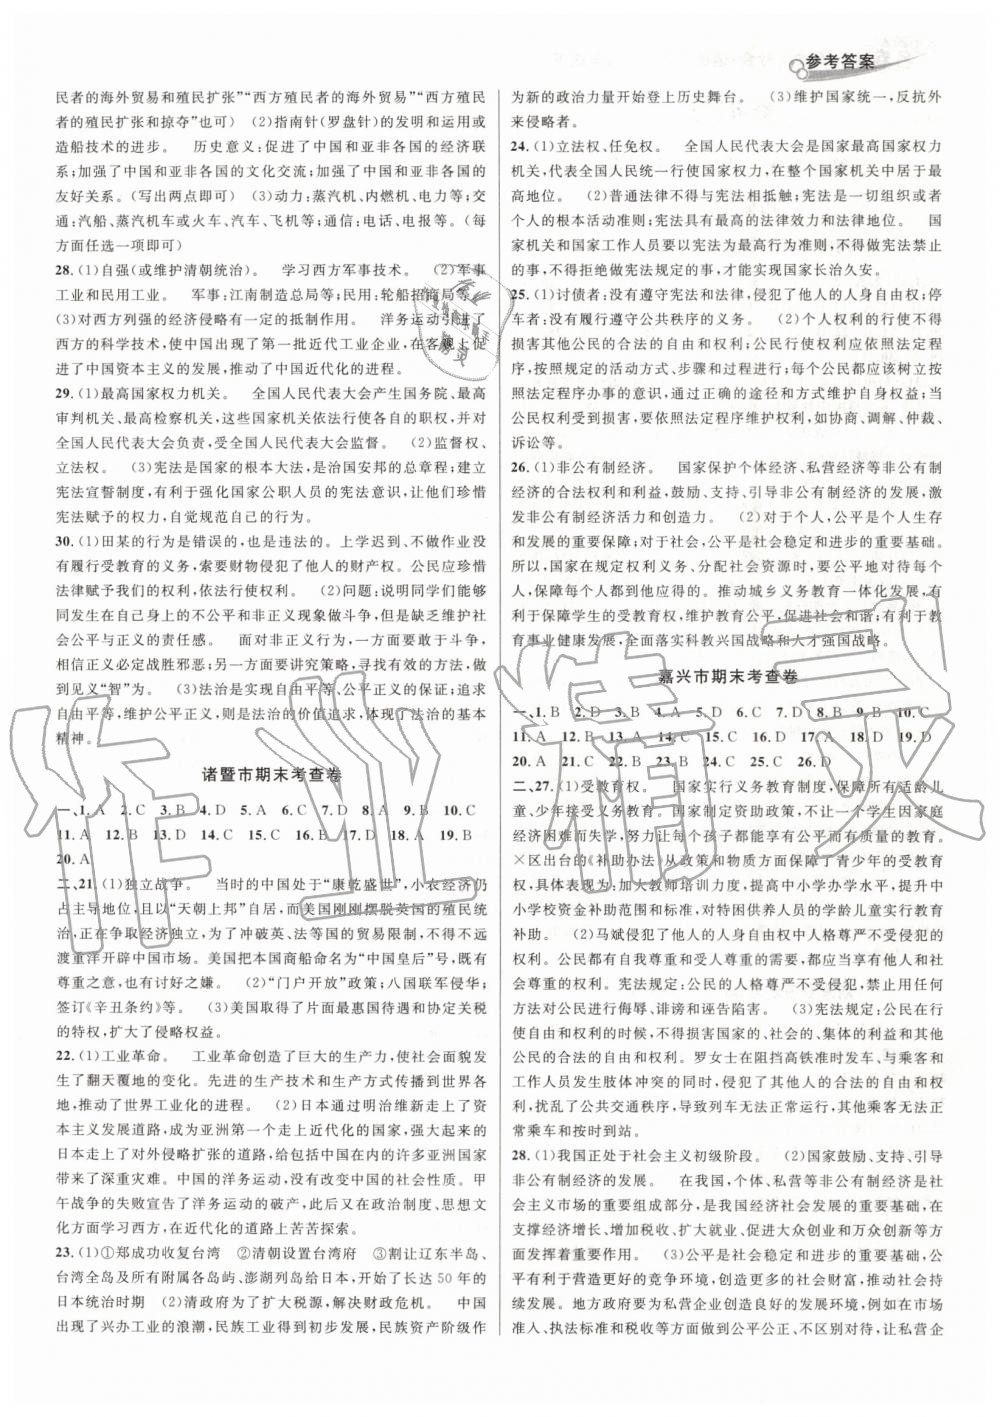 参考答案
民者的海外贸易和殖民扩张”“西方殖民者的海外贸易”“西方殖民
者的殖民扩张和掠夺”也可) (2)指南针(罗盘针)的发明和运用或
造船技术的进步。 历史意义:促进了中国和亚非各国的经济联
系;加强了中国和亚非各国的文化交流;加强了中国和亚非各国的
友好关系。(写出两点即可) (3)动力:蒸汽机、内燃机、电力等;交
通:汽船、蒸汽机车或火车、汽车、飞机等;通信:电话、电报等。(每
方面任选一项即可)
28. (1)自强(或维护清朝统治)。 学习西方军事技术。 (2)军事
工业和民用工业。 军事:江南制造总局等;民用:轮船招商局等。
(3)对西方列强的经济侵略有一定的抵制作用。 洋务运动引进了
西方的科学技术,使中国出现了第一批近代工业企业,在客观上促
进了中国资本主义的发展,推动了中国近代化的进程。
29. (1)最高国家权力机关。 全国人民代表大会产生国务院、最高
审判机关、最高检察机关,这些国家机关依法行使各自的职权,并对
全国人民代表大会负责,受全国人民代表大会监督。 (2)监督权、
立法权。 (3)宪法是国家的根本大法,是治国安邦的总章程;建立
宪法宣誓制度,有利于强化国家公职人员的宪法意识,让他们珍惜
宪法赋予的权力,自觉规范自己的行为。
30. (1)田某的行为是错误的,也是违法的。上学迟到、不做作业没
有履行受教育的义务,索要财物侵犯了他人的财产权。公民应珍惜
法律赋予我们的权利,依法行使权利。 (2)问题:说明同学们能够
同发生在自己身上的不公平和非正义现象做斗争,但是缺乏维护社
会公平与正义的责任感。 面对非正义行为,一方面要敢于斗争,
相信正义必定战胜邪恶;一方面要讲究策略,寻找有效的方法,做
到见义“智”为。 (3)法治是实现自由平等、公平正义的保证;追求
自由平等,维护公平正义,则是法治的价值追求,体现了法治的基本
精神。
诸暨市期末考查卷
一、1. A 2. C 3. B 4. D 5. A 6. C 7. D 8. A 9. B 10. C
11. A 12. B 13. D 14. C 15. C 16. B 17. D 18. A 19. B
20. A
二、21. (1)独立战争。 当时的中国处于“康乾盛世”,小农经济仍
占主导地位,且以“天朝上邦”自居,而美国刚刚摆脱英国的殖民统
治,正在争取经济独立,为了冲破英、法等国的贸易限制,不得不远
渡重洋开辟中国市场。美国把本国商船命名为“中国皇后”号,既有
尊重之意,也有讨好之嫌。 (2)“门户开放”政策;八国联军侵华;
签订《辛丑条约》等。 (3)美国取得了片面最惠国待遇和协定关税
的特权,扩大了侵略权益。
22. (1)工业革命。 工业革命创造了巨大的生产力,使社会面貌发
生了翻天覆地的变化。先进的生产技术和生产方式传播到世界各
地,推动了世界工业化的进程。 (2)日本通过明治维新走上了资
本主义发展道路,成为亚洲第一个走上近代化的国家,强大起来的
日本走上了对外侵略扩张的道路,给包括中国在内的许多亚洲国家
带来了深重灾难。中国的洋务运动没有使中国走上富强的道路。甲
午战争的失败宣告了洋务运动的破产,此后又在政治制度、思想文
化方面学习西方,在近代化的道路上苦苦探索。
23. (1)①郑成功收复台湾 ②清朝设置台湾府 ③割让辽东半岛、
台湾全岛及所有附属各岛屿、澎湖列岛给日本,开始了长达 50 年的
日本统治时期 (2)清政府为了扩大税源,解决财政危机。 中国
出现了兴办工业的浪潮,民族工业得到初步发展,民族资产阶级作
为新的政治力量开始登上历史舞台。 (3)维护国家统一,反抗外
来侵略者。
24. (1)立法权、任免权。 全国人民代表大会是国家最高国家权力
机关,代表全国人民统一行使国家权力,在整个国家机关中居于最
高地位。 (2)普通法律不得与宪法相抵触;宪法是一切组织或者
个人的根本活动准则;宪法具有最高的法律效力和法律地位。 国
家机关和国家工作人员要以宪法为最高行为准则,不得做宪法禁止
的事,不得拒绝做宪法规定的事,才能实现国家长治久安。
25. (1)讨债者:没有遵守宪法和法律,侵犯了他人的人身自由权;停
车者:没有履行遵守公共秩序的义务。 (2)个人权利的行使不得
损害其他公民的合法的自由和权利;公民行使权利应依照法定程
序,按照规定的活动方式、步骤和过程进行;每个公民都应该树立按
照法定程序办事的意识,通过正确的途径和方式维护自身权益;当
公民权利受到损害,要依照法定程序维护权利,如协商、调解、仲裁、
诉讼等。
26. (1)非公有制经济。 国家保护个体经济、私营经济等非公有制
经济的合法权利和利益,鼓励、支持、引导非公有制经济的发展,
激发非公有制经济活力和创造力。 (2)对于个人,公平是个人生存
和发展的重要保障;对于社会,公平是社会稳定和进步的重要基础。
所以,国家在规定权利义务、分配社会资源时,要公平地对待每个
人,保障每个人都得到他应得的。推动城乡义务教育一体化发展,有
利于保障学生的受教育权,维护教育公平,促进社会和谐;有利于教
育事业健康发展,全面落实科教兴国战略和人才强国战略。
嘉兴市期末考查卷
一、1. B 2. D 3. B 4. A 5. C 6. C 7. D 8. B 9. B 10. C
11. A 12. D 13. B 14. D 15. C 16. D 17. A 18. D 19. D
20. A 21. A 22. C 23. C 24. C 25. C 26. D
二、27. (1)受教育权。 国家实行义务教育制度,保障所有适龄儿
童、少年接受义务教育。国家制定资助政策,不让一个学生因家庭
经济困难而失学,努力让每个孩子都能享有公平而有质量的教育。
×区出台的《补助办法》从政策和物质方面保障了青少年的受教育
权,发展措施有:加大教师培训力度,提高中小学办学水平,提升中
小学校资金补助范围和标准,对特困供养人员的学龄儿童实行教育
补助。 (2)马斌侵犯了他人的人身自由权中人格尊严不受侵犯的
权利。公民都有自我尊重和受人尊重的需要,都不能容忍人格尊严
受到侵犯。宪法规定:公民的人格尊严不受侵犯,禁止用任何
方法对公民进行侮辱、诽谤和诬告陷害。 (3)宪法规定:公民在行
使自由和权利的时候,不得损害国家的、社会的、集体的利益和其他
公民的合法的自由和权利。罗女士在阻挡高铁准时发车、与乘客和
工作人员发生肢体冲突的同时,侵犯了其他人的合法的自由和权
利,扰乱了公共交通秩序,导致列车无法正常运行,其他乘客无法正
常乘车和按时到站。
28. (1)我国正处于社会主义初级阶段。 (2)国家鼓励、支持、引导
非公有制经济的发展。 在我国,个体、私营等非公有制经济是社
会主义市场经济的重要组成部分,是我国经济社会发展的重要基础,在
支撑经济增长、增加税收、扩大就业、促进大众创业和万众创新等方
面发挥着重要作用。 (3)公平是社会稳定和进步的重要基础。公
平有利于营造更好的竞争环境,创造更多的社会财富,推动社会持
续发展。地方政府要为私营企业创造良好的发展环境,例如在市场
准入、执法标准和税收等方面做到公平公正、不区别对待,让私营企
作业精灵